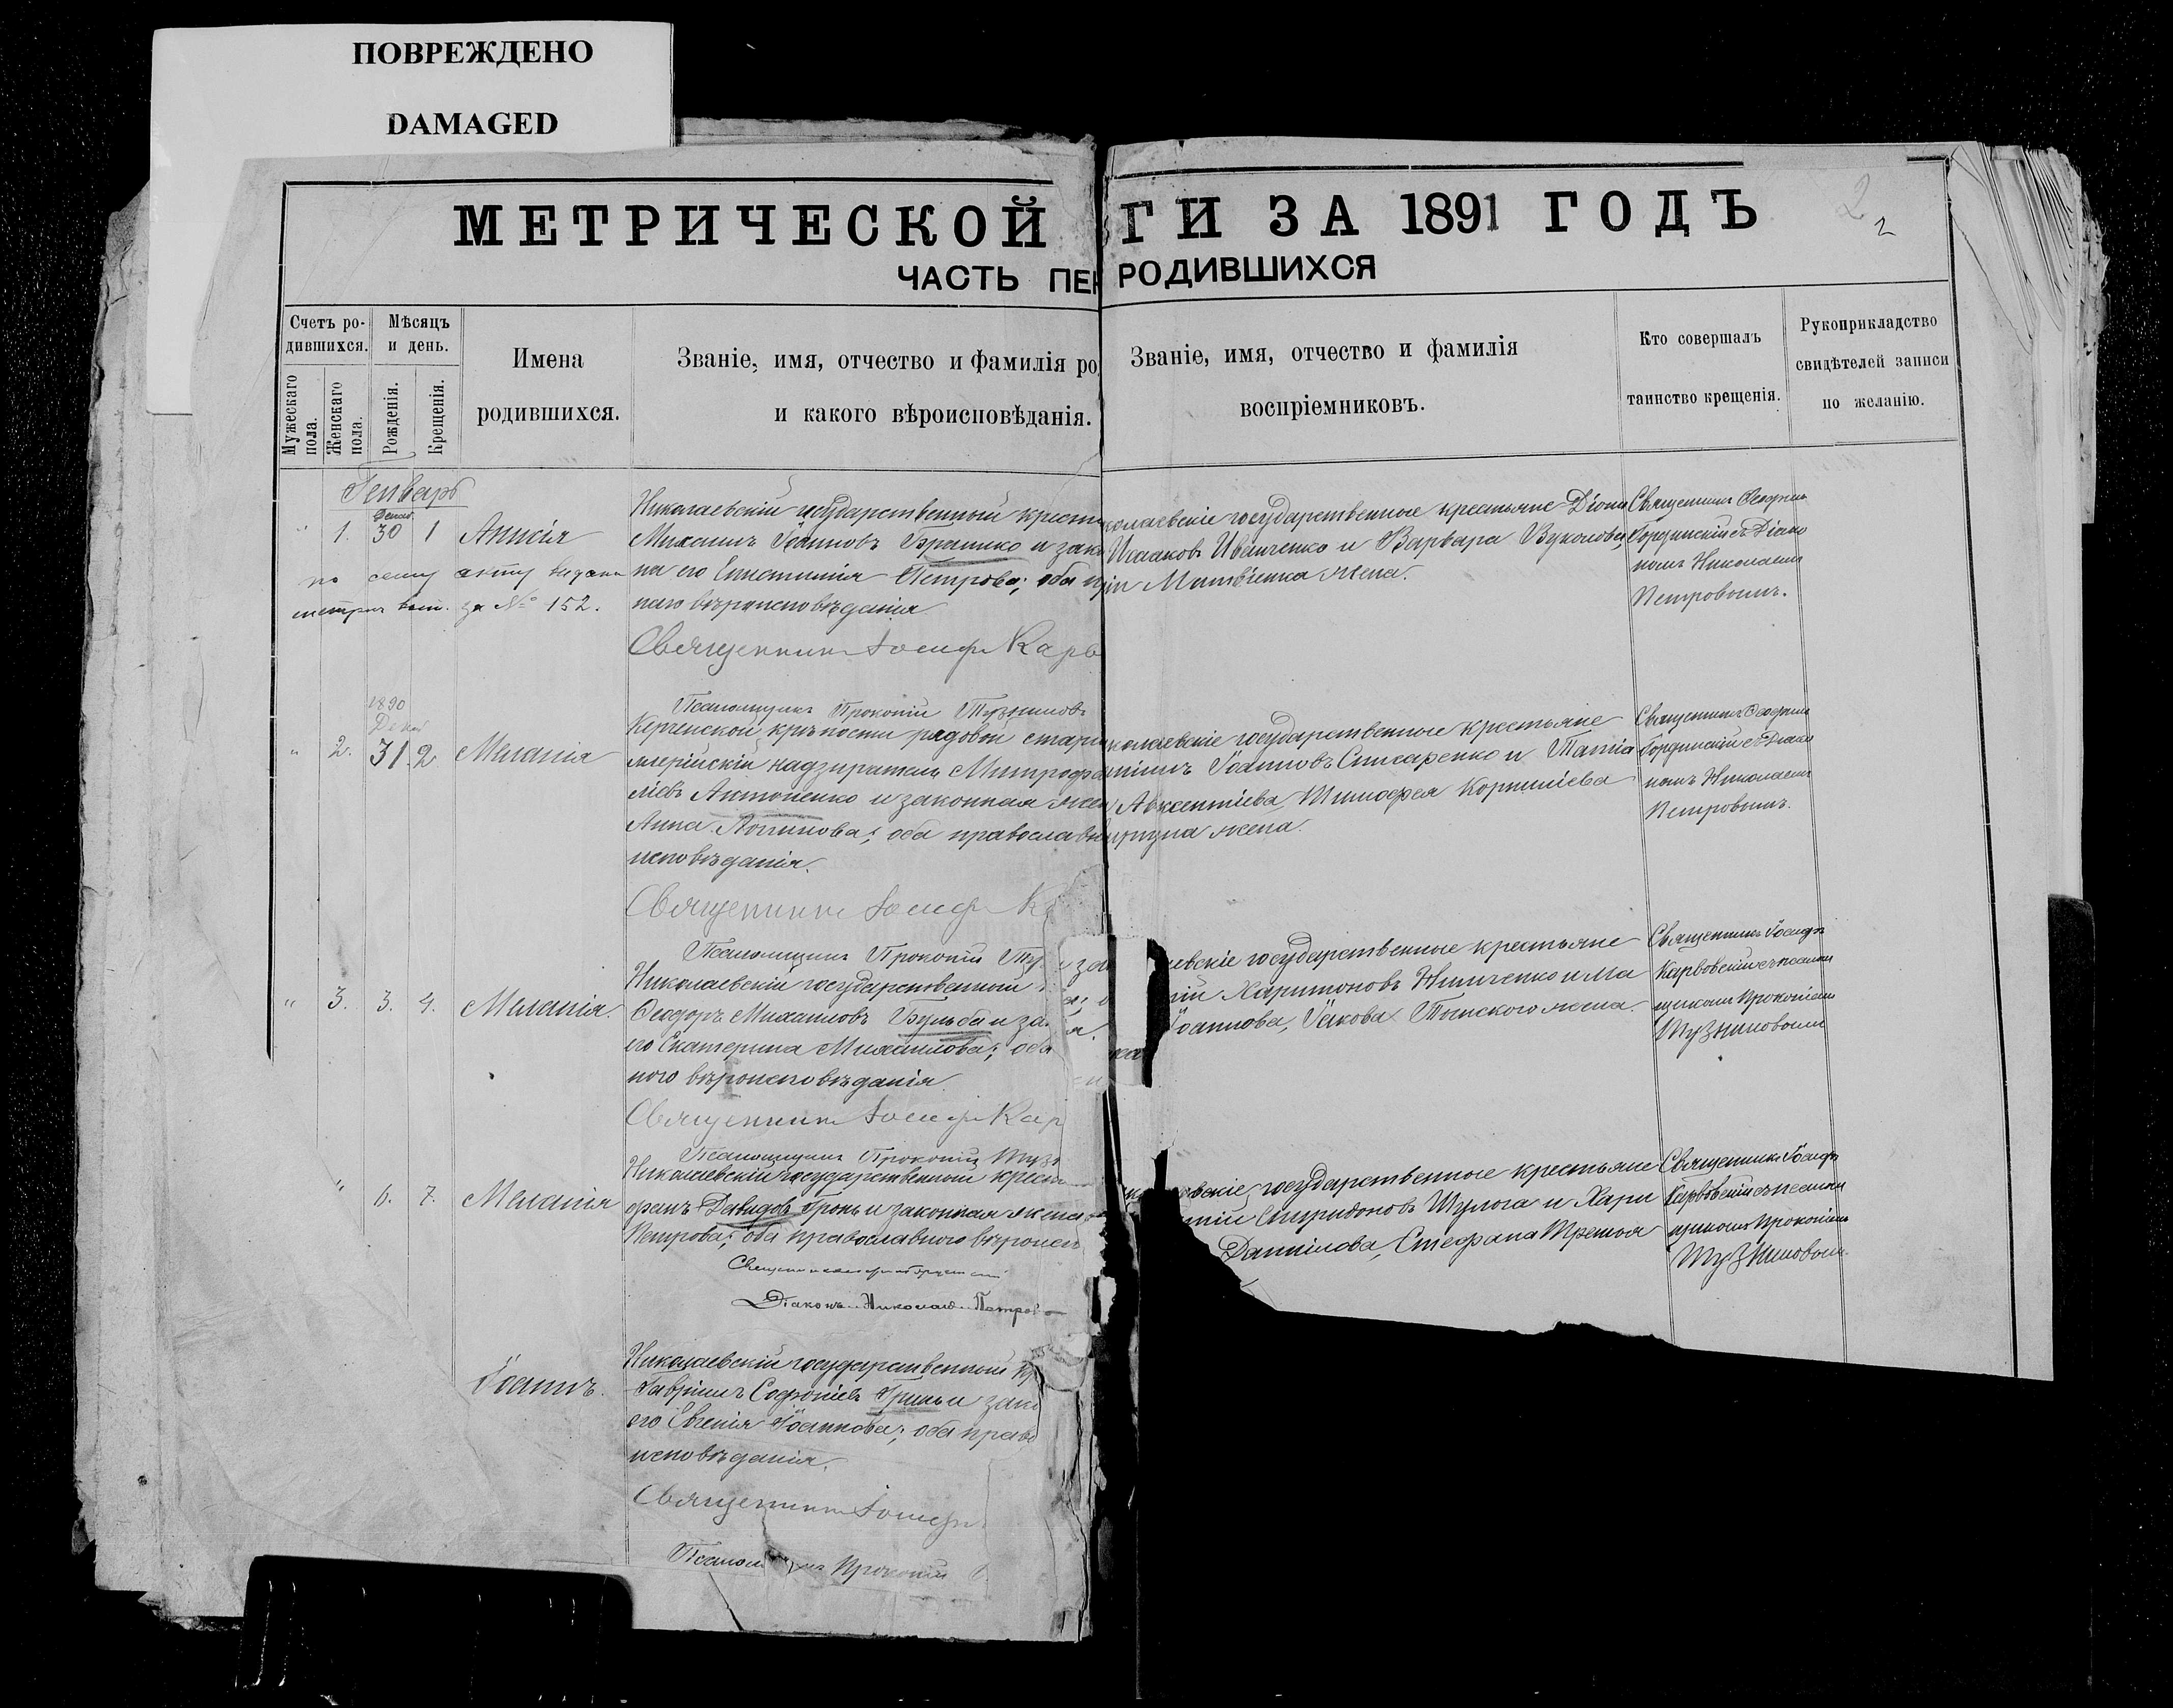 ПОВРЕЖДЕНО
DAMAGED
МЕТРИЧЕСКОЙ ГИ ЗА 1891 ГОДЪ
2
2
ЧАСТЬ ПЕР РОДИВШИХСЯ
Счетъ ро-
дившихся.
Мѣсяцъ
и день.
Мужескаго
пола.
Женскаго
пола.
Рожденія.
Крещенія.
Имена
родившихся.
Званіе, имя, отчество и фамилія ро
и какого вѣроисповѣданія.
Званіе, имя, отчество и фамилія
воспріемниковъ.
Кто совершалъ
таинство крещенія.
Рукоприкладство
свидѣтелей записи
по желанію.
Генварь
" 1. 30 1 Анисія
по сему акту выдана
метрич за № 152.
Николаевскій государственный крест
Михаилъ Іоанновъ и зако
на его Петрова; оба
наго вѣроисповѣданія
Священникъ Іосифъ Карв
колаевскіе государственные крестьяне Діони
Исааковъ Иванченко и Варвара Вуколова,
Матвіенка жена.
Священникъ
Гординскій съ Діако
номъ Николаемъ
Петровымъ.
Псаломщикъ Прокопій Тузниковъ
1890
Декаб
" 2. 31. 2 Меланія
Керченской крѣпости рядовой старш
надзиратель Митрофа
ліевъ Антоненко и законная жен
Анна Логинова; оба православн
исповѣданія.
Священникъ Іосифъ К
колаевскіе государственные крестьяне
Іоанновъ Слисаренко и Татіа
Авксентіева, Тимофея Корниліева
жена.
Священникъ
Гординскій съ Діако
номъ Николаемъ
Петровымъ.
Псаломщикъ Прокопій Ту
" 3. 3. 4. Меланія.
Николаевскій государственный
Ѳеодоръ Михаиловъ Бульба и за
его Екатерина Михаилова; оба
ного вѣроисповѣданія
Священникъ Іосифъ Кар
евскіе государственные крестьяне
Харитоновъ Ниниченко и Ма
Іоаннова, Іакова Томского жена.
Священникъ Іосифъ
Карвовскій съ псалом
щикомъ Прокопіемъ
Тузниковымъ
Псаломщикъ Прокопій Тузн
" 6. 7. Меланія
Николаевскій государственный крест
фанъ Давидовъ Бронь и законная жена
Петрова; оба православного вѣроисп
Діаконъ Николай Петров
вскіе государственные крестьяне
Спиридоновъ Шулога и Хари
Даніилова, Стефана Третья
Священникъ Іосифъ
Карвовскій съ псалом
щикомъ Прокопіемъ
Тузниковым
Іоаннъ.
Николаевскій государственный кр
Гавріилъ Софроніевъ Гринь и зако
его Евгенія Іоаннова; оба право
исповѣданія.
Священникъ Іосифъ
Прокопій